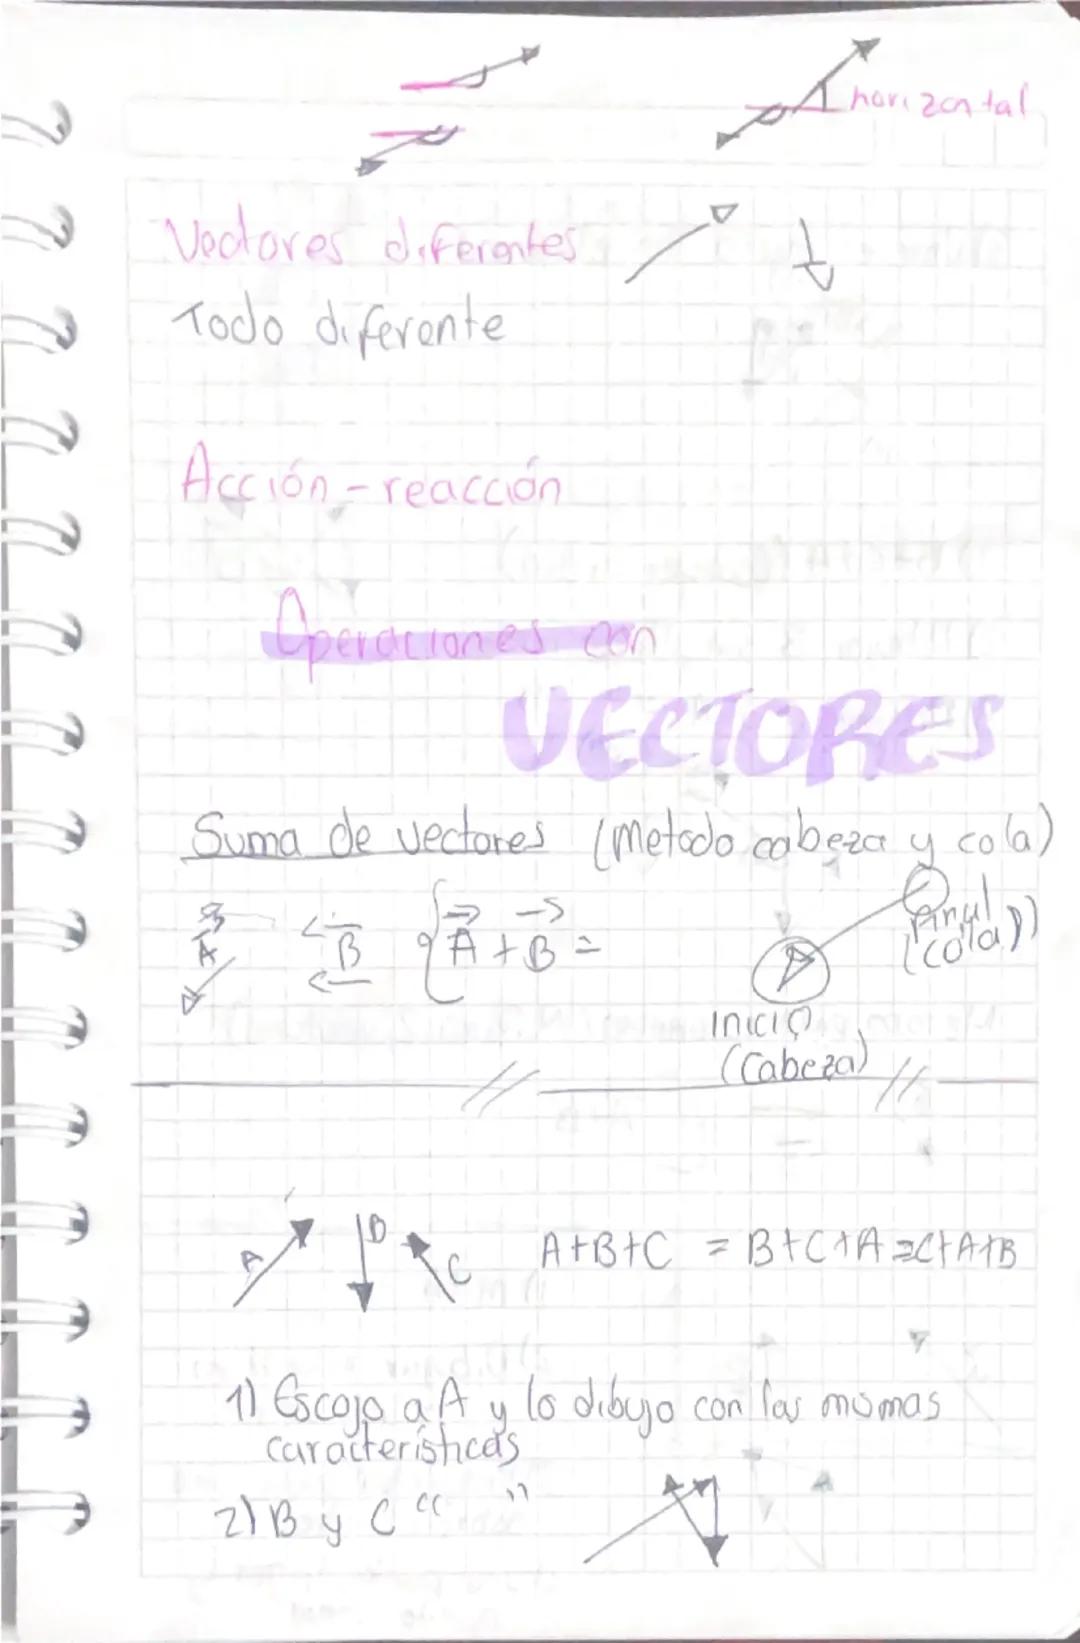 horizontal
Vectores diferentes
Todo diferente
Acción - reacción
Operaciones con
VECTORES
Suma de vectores (Metodo cabeza y cola)
A B { A + B =
Final
(cola))
Inicio
(Cabeza)
A B C A+B+C = B+C+A = C+A+B
1) Escojo a A y lo dibujo con las mismas
características
2) B y C “ ”